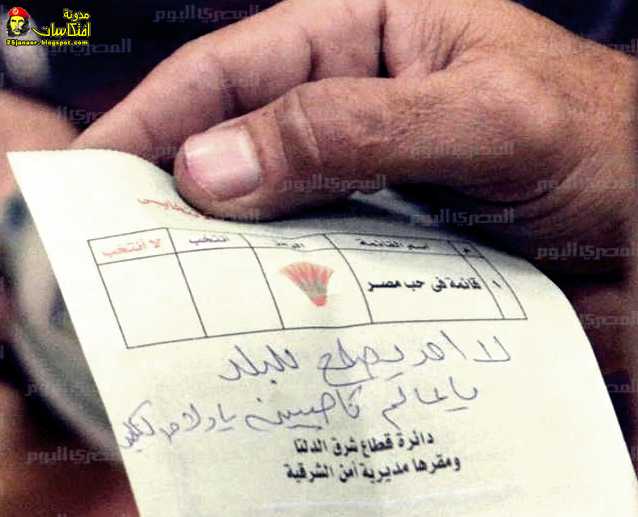 مدونة
افتكاسات
25janaer.blogspot.com
المصري اليوم
م اسم القائمة الرمز أنتخب لا أنتخب
١ قائمة فى حب مصر
لا احد يصلح للبلد
يا عالم
دائرة قطاع شرق الدلتا
ومقرها مديرية أمن الشرقية